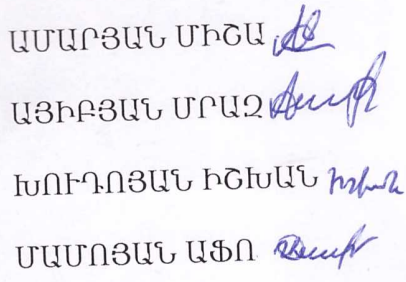 ԱՄԱՐՅԱՆ ՄԻՇԱ
ԱՅԻԲՅԱՆ ՄՐԱԶ
ԽՈՒԴՈՅԱՆ ԻՇԽԱՆ
ՄԱՄՈՅԱՆ ԱՖՈ